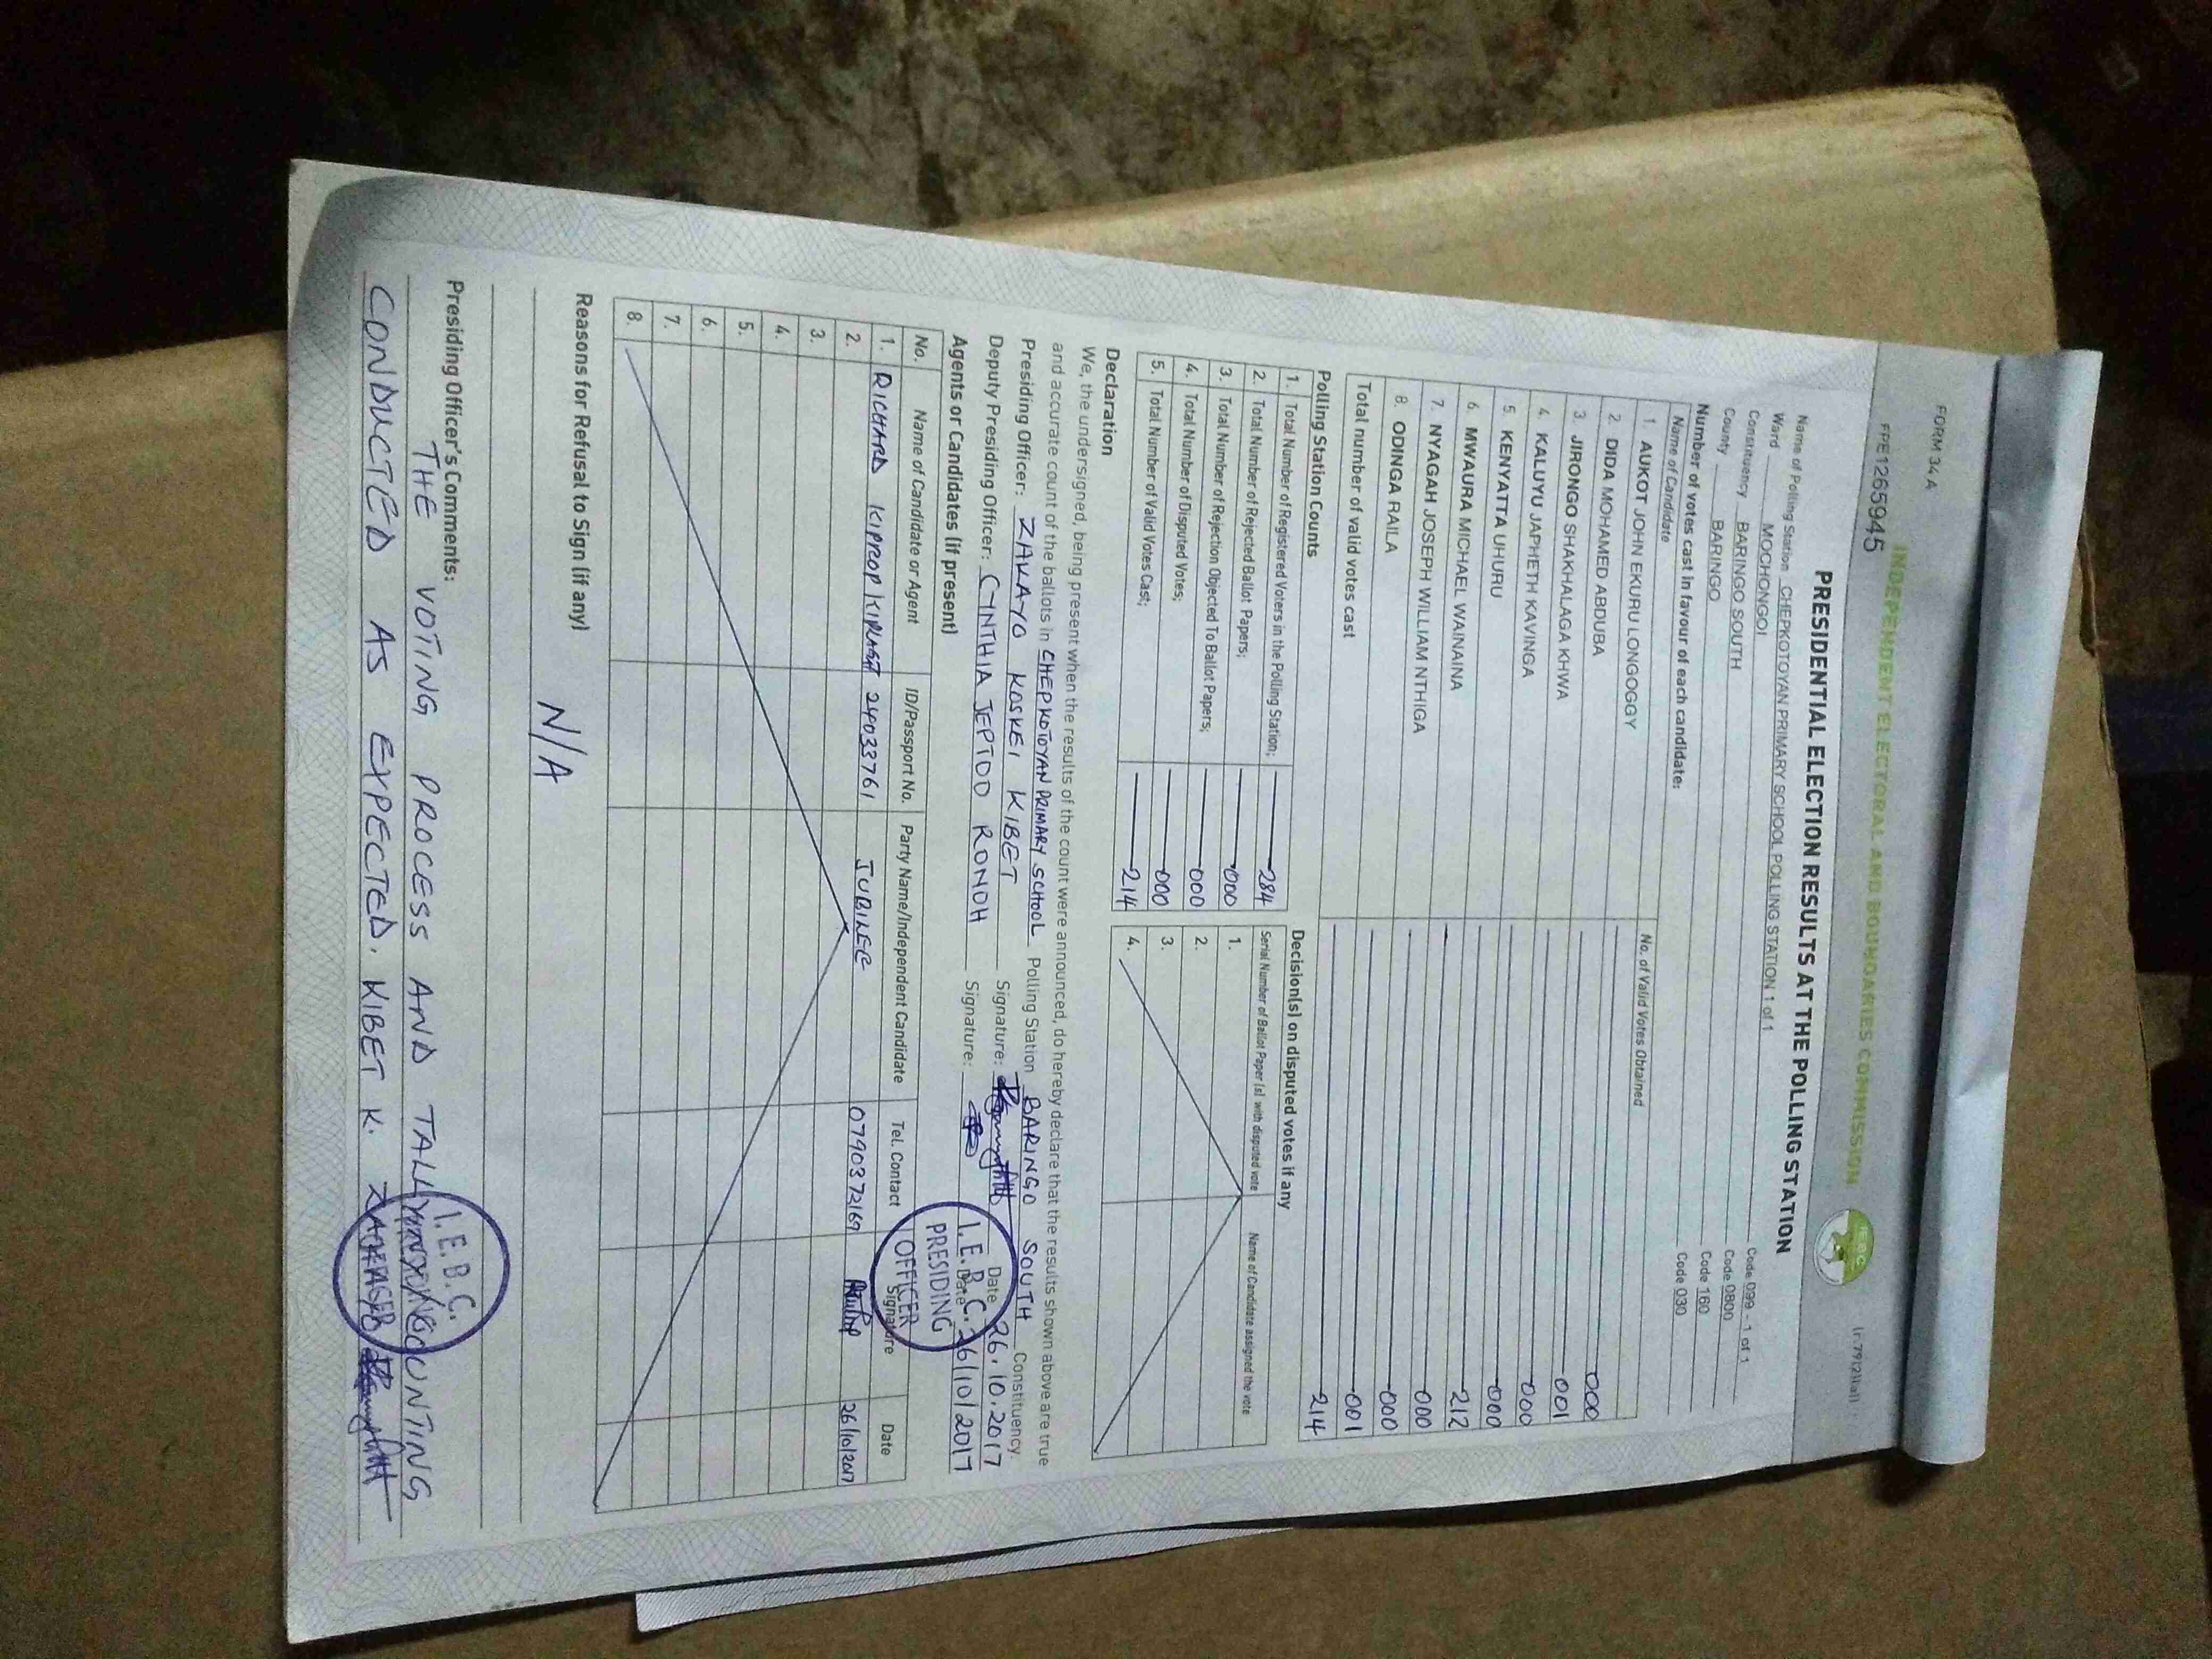 FORM 34 A
FPE1265945
(r.79(2)(a))
INDEPENDENT ELECTORAL AND BOUNDARIES COMMISSION
PRESIDENTIAL ELECTION RESULTS AT THE POLLING STATION
Name of Polling Station CHEPKOTOYAN PRIMARY SCHOOL POLLING STATION 1 of 1 Code 099 - 1 of 1
Ward MOCHONGOI Code 0800
Constituency BARINGO SOUTH Code 160
County BARINGO Code 030
Number of votes cast in favour of each candidate:
Name of Candidate No. of Valid Votes Obtained
1. AUKOT JOHN EKURU LONGOGGY 000
2. DIDA MOHAMED ABDUBA 001
3. JIRONGO SHAKHALAGA KHWA 000
4. KALUYU JAPHETH KAVINGA 000
5. KENYATTA UHURU 212
6. MWAURA MICHAEL WAINAINA 000
7. NYAGAH JOSEPH WILLIAM NTHIGA 000
8. ODINGA RAILA 001
Total number of valid votes cast 214
Polling Station Counts
1. Total Number of Registered Voters in the Polling Station; 284
2. Total Number of Rejected Ballot Papers; 000
3. Total Number of Rejection Objected To Ballot Papers; 000
4. Total Number of Disputed Votes; 000
5. Total Number of Valid Votes Cast; 214
Decision(s) on disputed votes if any
Serial Number of Ballot Paper (s) with disputed vote Name of Candidate assigned the vote
1.
2.
3.
4.
Declaration
We, the undersigned, being present when the results of the count were announced, do hereby declare that the results shown above are true
and accurate count of the ballots in CHEPKOTOYAN PRIMARY SCHOOL Polling Station BARINGO SOUTH Constituency.
Presiding Officer: ZAKAYO KOSKEI KIBET Signature: Date 26.10.2017
Deputy Presiding Officer: CYNTHIA JEPTOO RONOH Signature: Date 26/10/2017
I.E.B.C.
PRESIDING
OFFICER
Agents or Candidates (if present)
No. Name of Candidate or Agent ID/Passport No. Party Name/Independent Candidate Tel. Contact Signature Date
1. RICHARD KIPROP 24033761 JUBILEE 0790372169 26/10/2017
2.
3.
4.
5.
6.
7.
8.
Reasons for Refusal to Sign (if any)
N/A
Presiding Officer's Comments:
THE VOTING PROCESS AND TALLYING COUNTING
CONDUCTED AS EXPECTED. KIBET K.
I.E.B.C.